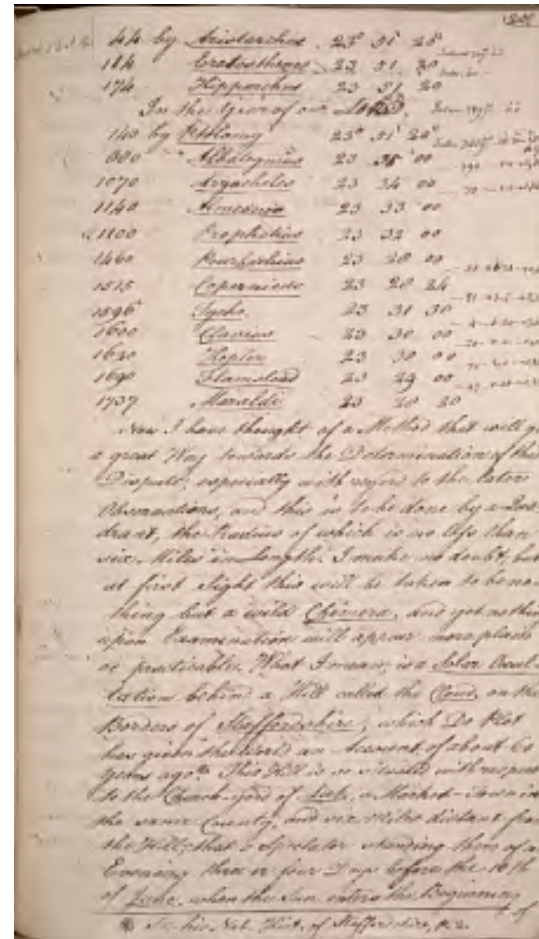 44 by Aristarchus 23° 51' 20"
184 Eratosthenes 23 51 20
174 Hipparchus 23 51 20
In the Year of our Lord,
140 by Ptolamy 23° 51' 20"
Albategnius 23 35 00
1070 Arzacheles 23 34 00
1140 Almeonus 23 33 00
1300 Prophatius 23 32 00
1460 Purbachius 23 28 00
1515 Copernicus 23 28 24
1596 Tycho. 23 31 30
1600 Clavius 23 30 00
1630 Kepler 23 30 00
1690 Flamstead 23 29 00
1737 Maraldi 23 28 20
Now I have thought of a Method that will go
a great Way towards the Determination of this
Dispute, especially with regard to the later
Observations, and this is to be done by a Qua
drant, the Radius of which is no less than
six Miles in Length. I make no doubt, but
at first Sight this will be taken to be no-
thing but a wild Chimera, and yet nothing
upon Examination will appear more plain
or practicable. What I mean, is a Solar Occul-
tation behind a Hill called the Cloud, on the
Borders of Staffordshire; which Dr Plot
has given the World an Account of about 60
Years ago. This Hill is so situated with respect
to the Church-yard of Leek, a Market-town in
the same County, and six Miles distant from
the Hill, that a Spectator standing there of an
Evening three or four Days before the 10th
of June, when the Sun enters the Beginning
of
See his Nat. Hist. of Staffordshire, p. 2.